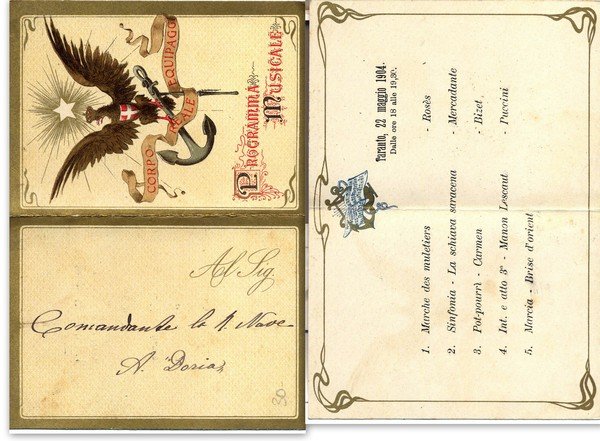 CORPO REALE EQUIPAGGI
PROGRAMMA
MUSICALE
Al Sig.
Comandante la R. Nave
A. Doria
30
Taranto, 22 maggio 1904.
Dalle ore 18 alle 19,30.
1. Marche des muletiers - Rosès
2. Sinfonia - La schiava saracena - Mercadante
3. Pot-pourrì - Carmen - Bizet
4. Int. e atto 3° - Manon Lescaut - Puccini
5. Marcia - Brise d'orient